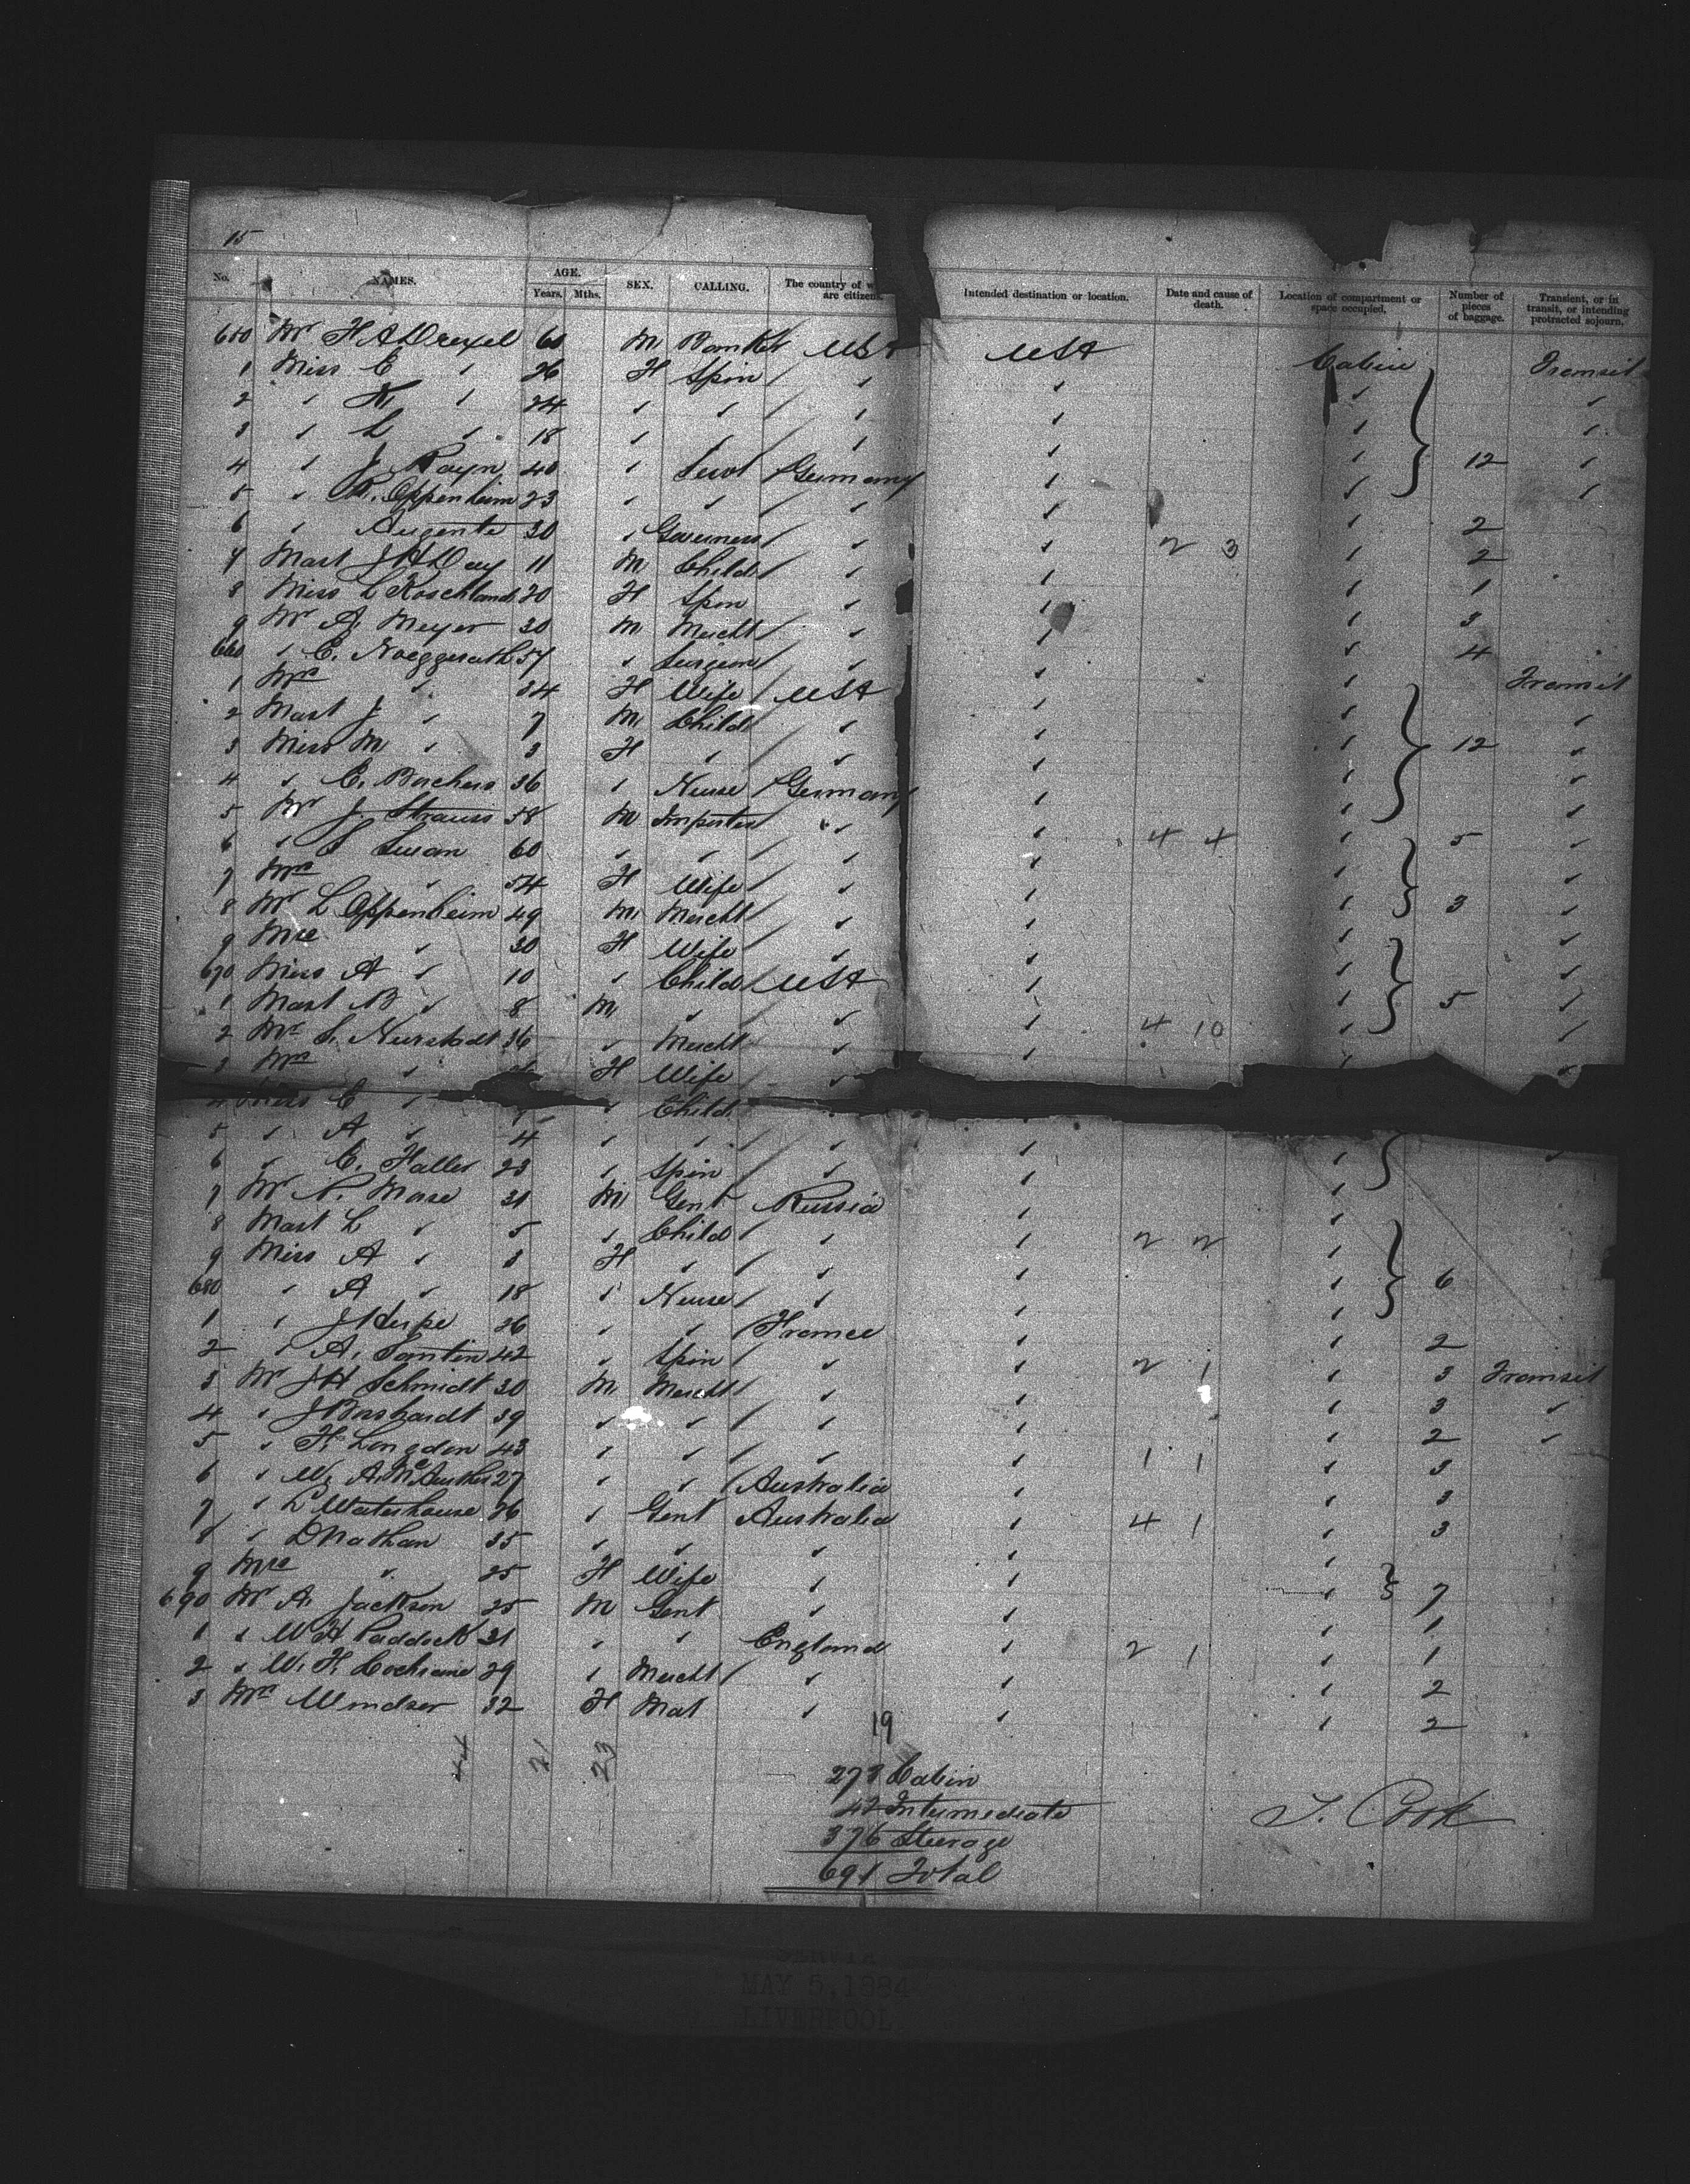 15
No. NAMES. AGE. Years. Mths. SEX. CALLING. The country of w are citizens. Intended destination or location. Date and cause of death. Location of compartment or space occupied. Number of pieces of baggage. Transient, or in transit, or intending protracted sojourn.
650 Mr H A Drexel 60 M Banker USA USA Cabin Transit
1 Miss E " 26 F Spin " " "
2 " K " 24 " " " " " "
3 " L " 18 " " " " " "
4 " J. 40 " Servt Germany " " 12 "
5 " R. Oppenheim 23 " " " " " "
6 " 30 " Governess " " " 2
7 Mast J H Day 11 M Child " " 2 3 " 2
8 Miss L Koschland 20 F Spin " " " 1
9 Mr A. Meyer 30 M Mercht " " " 3
660 " E. Noeggerath 57 " Surgeon " " " 4
1 Mrs " 34 F Wife USA " " Transit
2 Mast J. " 7 M Child " " " "
3 Miss M " 3 F " " " " 12 "
4 " E. Borchers 36 " Nurse Germany " " "
5 Mr J. Strauss 58 M Importer " " " "
6 " S Swan 60 " " " " 4 4 " 5 "
7 Mrs " 54 F Wife " " " "
8 Mr L Oppenheim 49 M Mercht " " " 3 "
9 Mrs " 30 F Wife " " " "
670 Miss A " 10 " Child USA " " "
1 Mast B " 8 M " " " " 5 "
2 Mr S. Neustadt 36 " Mercht " " 4 10 " "
3 Mrs " F Wife " " " "
4 Miss E " " Child
5 " A " 4 " " " " "
6 " C. Haller 23 " Spin " " "
7 Mr N. Morse 31 M Gent Russia " "
8 Mast L " 5 " Child " " 2 2 "
9 Miss A " 3 F " " " " 6
680 " A " 18 " Nurse " " "
1 " J 26 " " France " " 2
2 " A. 42 " Spin " " 2 1 " 3 Transit
3 Mr J H Schmidt 30 M Mercht " " " 3 "
4 " J Borshardt 39 " " " " " 2 "
5 " H. Longden 43 " " " " 1 1 " 3
6 " W. A. McArthur 27 " " Australia " " 3
7 " L Waterhouse 26 " Gent Australia " 4 1 " 3
8 " D Nathan 35 " " " " "
9 Mrs " 25 F Wife " " " 7
690 Mr A. Jackson 25 M Gent " " " 1
1 " W H Paddock 31 " " England " 2 1 " 1
2 " W. H. Cochrane 29 " Mercht " " " 2
3 Mrs Windsor 32 F Mat " " " 2
19
44 21 23
273 Cabin
42 Intermediate
376 Steerage
691 Total
T. Cook
MAY 5, 1884
LIVERPOOL